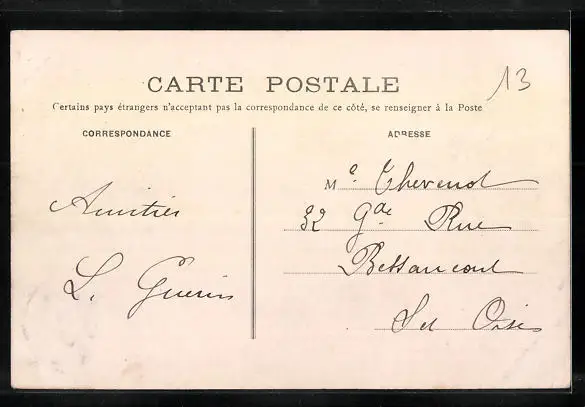 CARTE POSTALE
13
Certains pays étrangers n'acceptant pas la correspondance de ce côté, se renseigner à la Poste
CORRESPONDANCE
Amitiés
L. Guerin
ADRESSE
Me Thevenot
32 Gde Rue
Bessancourt
Set Oise